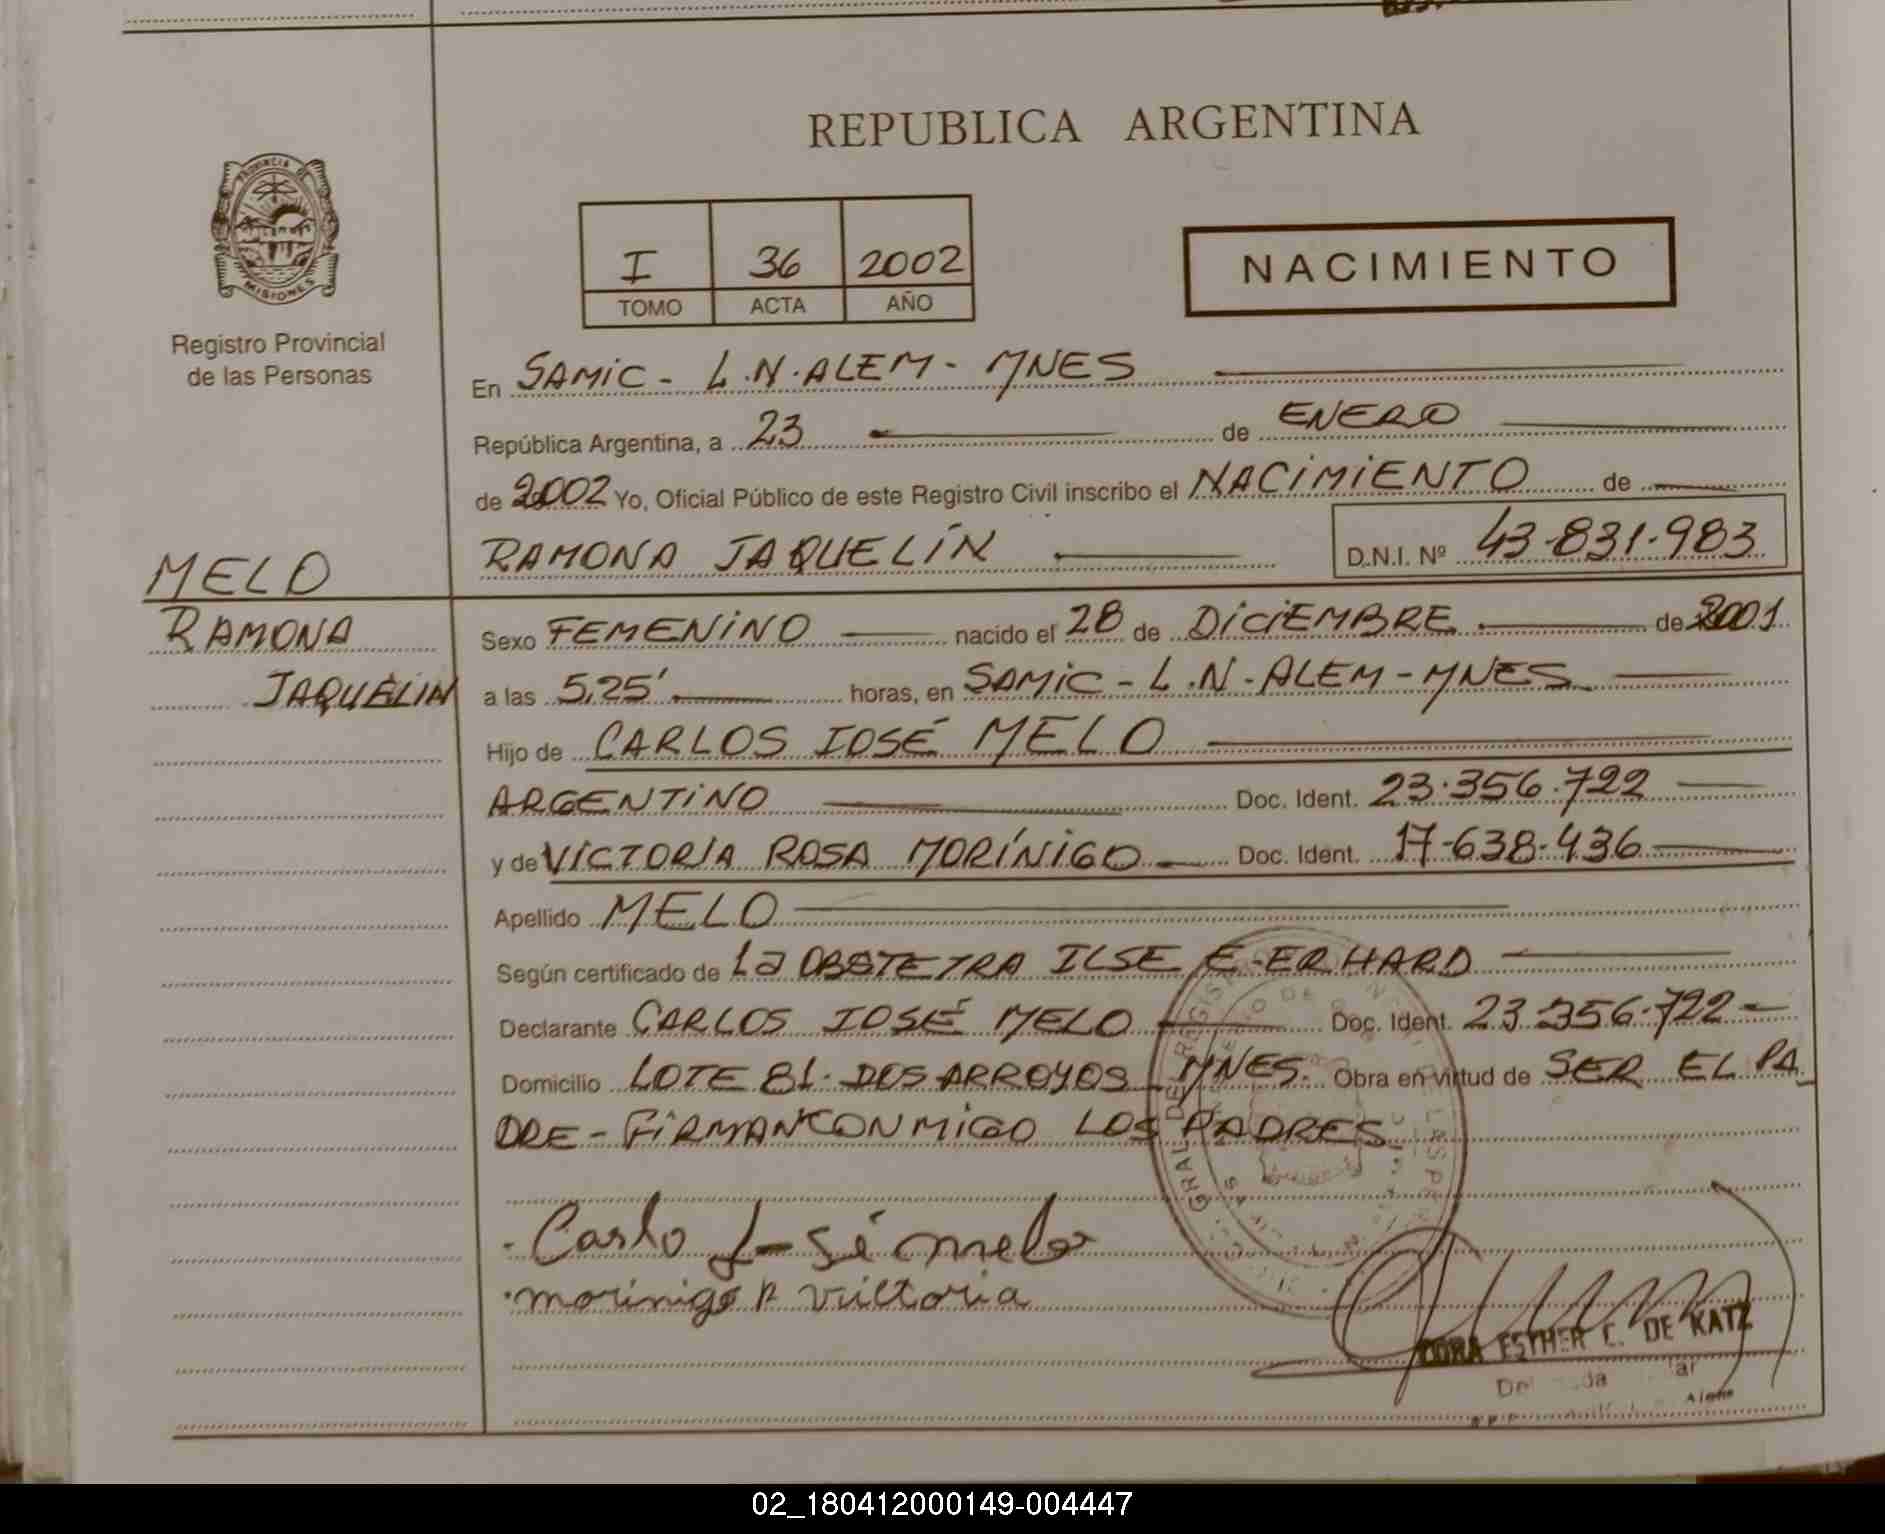 REPUBLICA ARGENTINA
PROVINCIA DE
MISIONES
Registro Provincial
de las Personas
I 36 2002
TOMO ACTA AÑO
NACIMIENTO
En SAMIC - L.N.ALEM - MNES
República Argentina, a 23 de ENERO
de 2002 Yo, Oficial Público de este Registro Civil inscribo el NACIMIENTO de
RAMONA JAQUELÍN D.N.I. Nº 43-831-983
MELO
RAMONA
JAQUELIN
Sexo FEMENINO nacido el 28 de DICIEMBRE de 2001
a las 5,25' horas, en SAMIC - L.N-ALEM - MNES
Hijo de CARLOS JOSÉ MELO
ARGENTINO Doc. Ident. 23.356.722
y de VICTORIA ROSA MORÍNIGO Doc. Ident. 17-638-436
Apellido MELO
Según certificado de La OBSTETRA ILSE E-ERHARD
Declarante CARLOS JOSÉ MELO Doc. Ident. 23-356-722
Domicilio LOTE 81. DOS ARROYOS MNES. Obra en virtud de SER EL PA
DRE - FIRMAN CONMIGO LOS PADRES
Carlo José melo
morinigo R victoria
DORA ESTHER C. DE KATZ
02_180412000149-004447